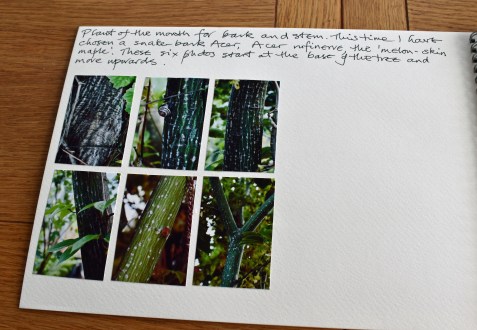 Plant of the month for bark and stem. This time I have
chosen a snake bark Acer, Acer rufinerve, the 'melon-skin
maple'. These six photos start at the base of the tree and
move upwards.